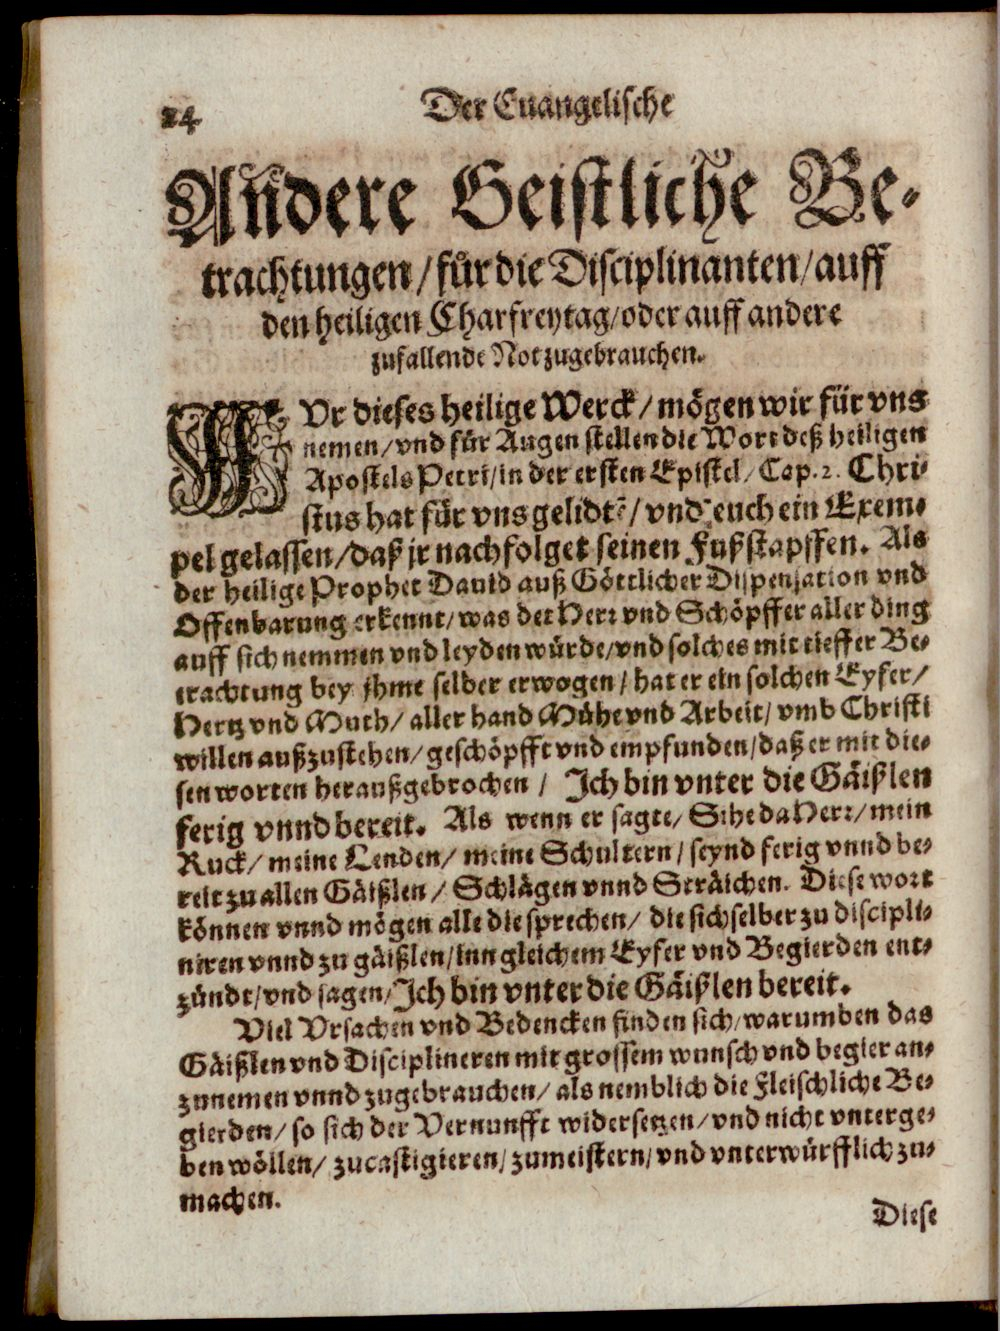 24 Der Euangelische
Andere Geistliche Be-
trachtungen/für die Disciplinanten/auff
den heiligen Charfreytag/oder auff andere
zufallende Not zugebrauchen.
Vr dieses heilige Werck/mögen wir für vns
nemen/vnd für Augen stellen die Wort deß heiligen
Apostels Petri/in der ersten Epistel/Cap.2. Chri-
stus hat für vns gelidtẽ/vnd euch ein Exem-
pel gelassen/daß jr nachfolget seinen Fußstapffen. Als
der heilige Prophet Dauid auß Göttlicher Dispensation vnd
Offenbarung erkennt/was der Herr vnd Schöpffer aller ding
auff sich nemmen vnd leyden würde/vnd solches mit tieffer Be-
trachtung bey jhme selber erwogen/hat er ein solchen Eyfer/
Hertz vnd Muth/aller hand Mühe vnd Arbeit/vmb Christi
willen außzustehen/geschöpfft vnd empfunden/daß er mit die-
sen worten heraußgebrochen/Ich bin vnter die Gäißlen
ferig vnnd bereit. Als wenn er sagte/Sihe da Herr/mein
Ruck/meine Lenden/meine Schultern/seynd ferig vnnd be-
reit zu allen Gäißlen/Schlägen vnnd Sträichen. Diese wort
können vnnd mögen alle die sprechen/die sich selber zu discipli-
niren vnnd zu gäißlen/inn gleichem Eyfer vnd Begierden ent-
zündt/vnd sagen/Ich bin vnter die Gäißlen bereit.
Viel Vrsachen vnd Bedencken finden sich/warumben das
Gäißlen vnd Disciplineren mit grossem wunsch vnd begier an-
zunemen vnnd zugebrauchen/als nemblich die Fleischliche Be-
gierden/so sich der Vernunfft widersetzen/vnd nicht vnterge-
ben wöllen/zucastigieren/zumeistern/vnd vnterwürfflich zu-
machen.
Diese